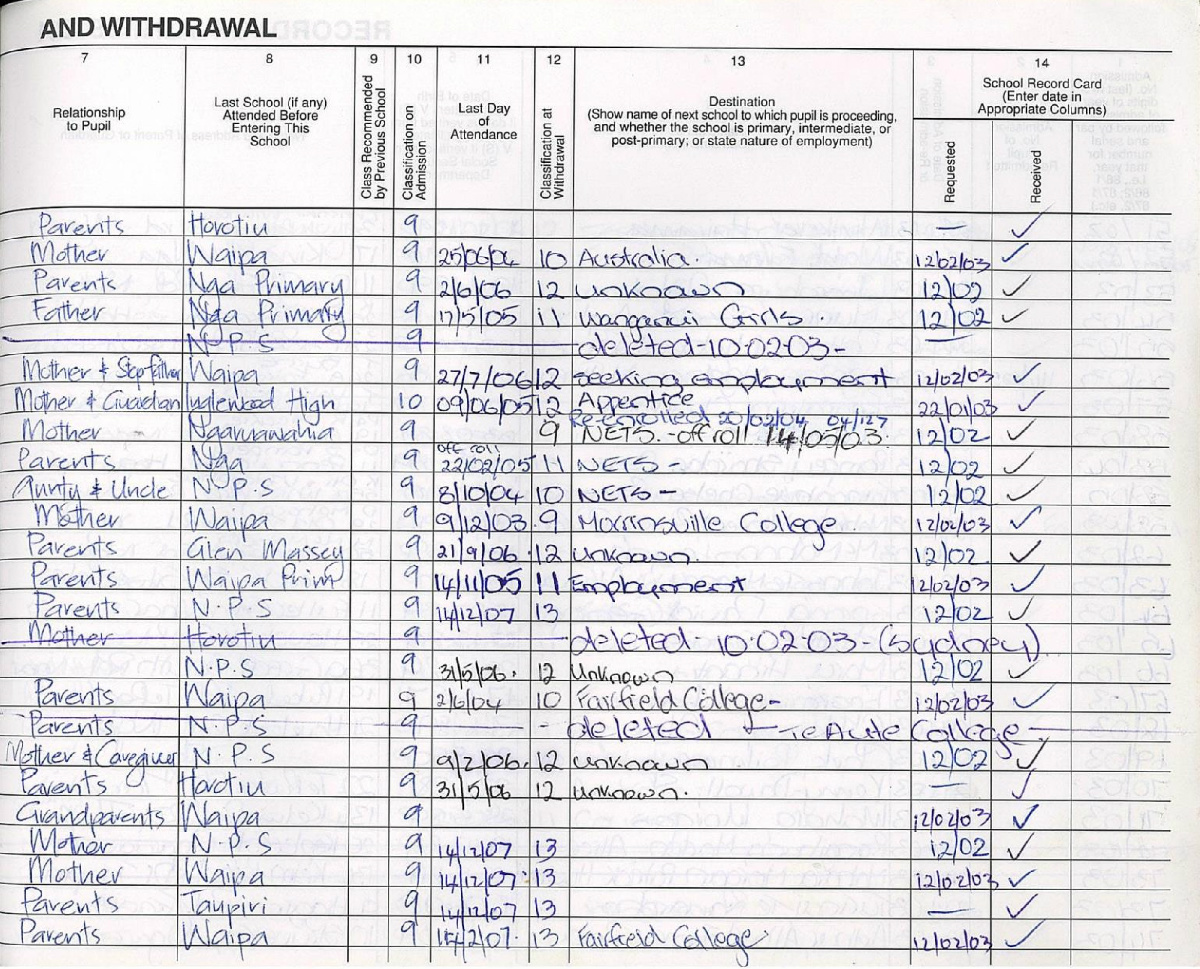 AND WITHDRAWAL
7 8 9 10 11 12 13 14
Relationship to Pupil
Last School (if any) Attended Before Entering This School
Class Recommended by Previous School
Classification on Admission
Last Day of Attendance
Classification at Withdrawal
Destination (Show name of next school to which pupil is proceeding, and whether the school is primary, intermediate, or post-primary; or state nature of employment)
School Record Card (Enter date in Appropriate Columns)
Requested Received
Parents Horotiu 9 — ✓
Mother Waipa 9 25/06/04 10 Australia. 12/02/03 ✓
Parents Nga Primary 9 2/6/06 12 unknown 12/02 ✓
Father Nga Primary 9 17/5/05 11 Wanganui Girls. 12/02 ✓
N.P.S 9 deleted-10.02.03- —
Mother & Stepfather Waipa 9 27/7/06 12 seeking employment 12/02/03 ✓
Mother & Guardian Inglewood High 10 09/06/05 12 Apprentice 22/01/03 ✓
Re-enrolled 20/02/04 04/127
Mother Ngaruawahia 9 9 NETS.-off roll 14/05/03. 12/02 ✓
off roll
Parents Nga 9 22/02/05 11 NETS - 12/02 ✓
Aunty & Uncle N.P.S 9 8/10/04 10 NETS - 12/02 ✓
Mother Waipa 9 9/12/03 9 Morrinsville College. 12/02/03 ✓
Parents Glen Massey 9 21/9/06 12 unknown. 12/02 ✓
Parents Waipa Prim 9 14/11/05 11 Employment 12/02/03 ✓
Parents N.P.S 9 14/12/07 13 12/02 ✓
Mother Horotiu 9 deleted-10.02.03-(Sydney)
N.P.S 9 31/5/06. 12 Unknown 12/02 ✓
Parents Waipa 9 2/6/04 10 Fairfield College- 12/02/03 ✓
Parents N.P.S 9 - deleted - Te Aute College -
Mother & Caregiver N.P.S 9 9/2/06. 12 unknown 12/02 ✓
Parents Horotiu 9 31/5/06 12 unknown. — ✓
Grandparents Waipa 9 12/02/03 ✓
Mother N.P.S 9 14/12/07 13 12/02 ✓
Mother Waipa 9 14/12/07 13 12/02/03 ✓
Parents Taupiri 9 14/12/07 13 — ✓
Parents Waipa 9 13 Fairfield College 12/02/03 ✓